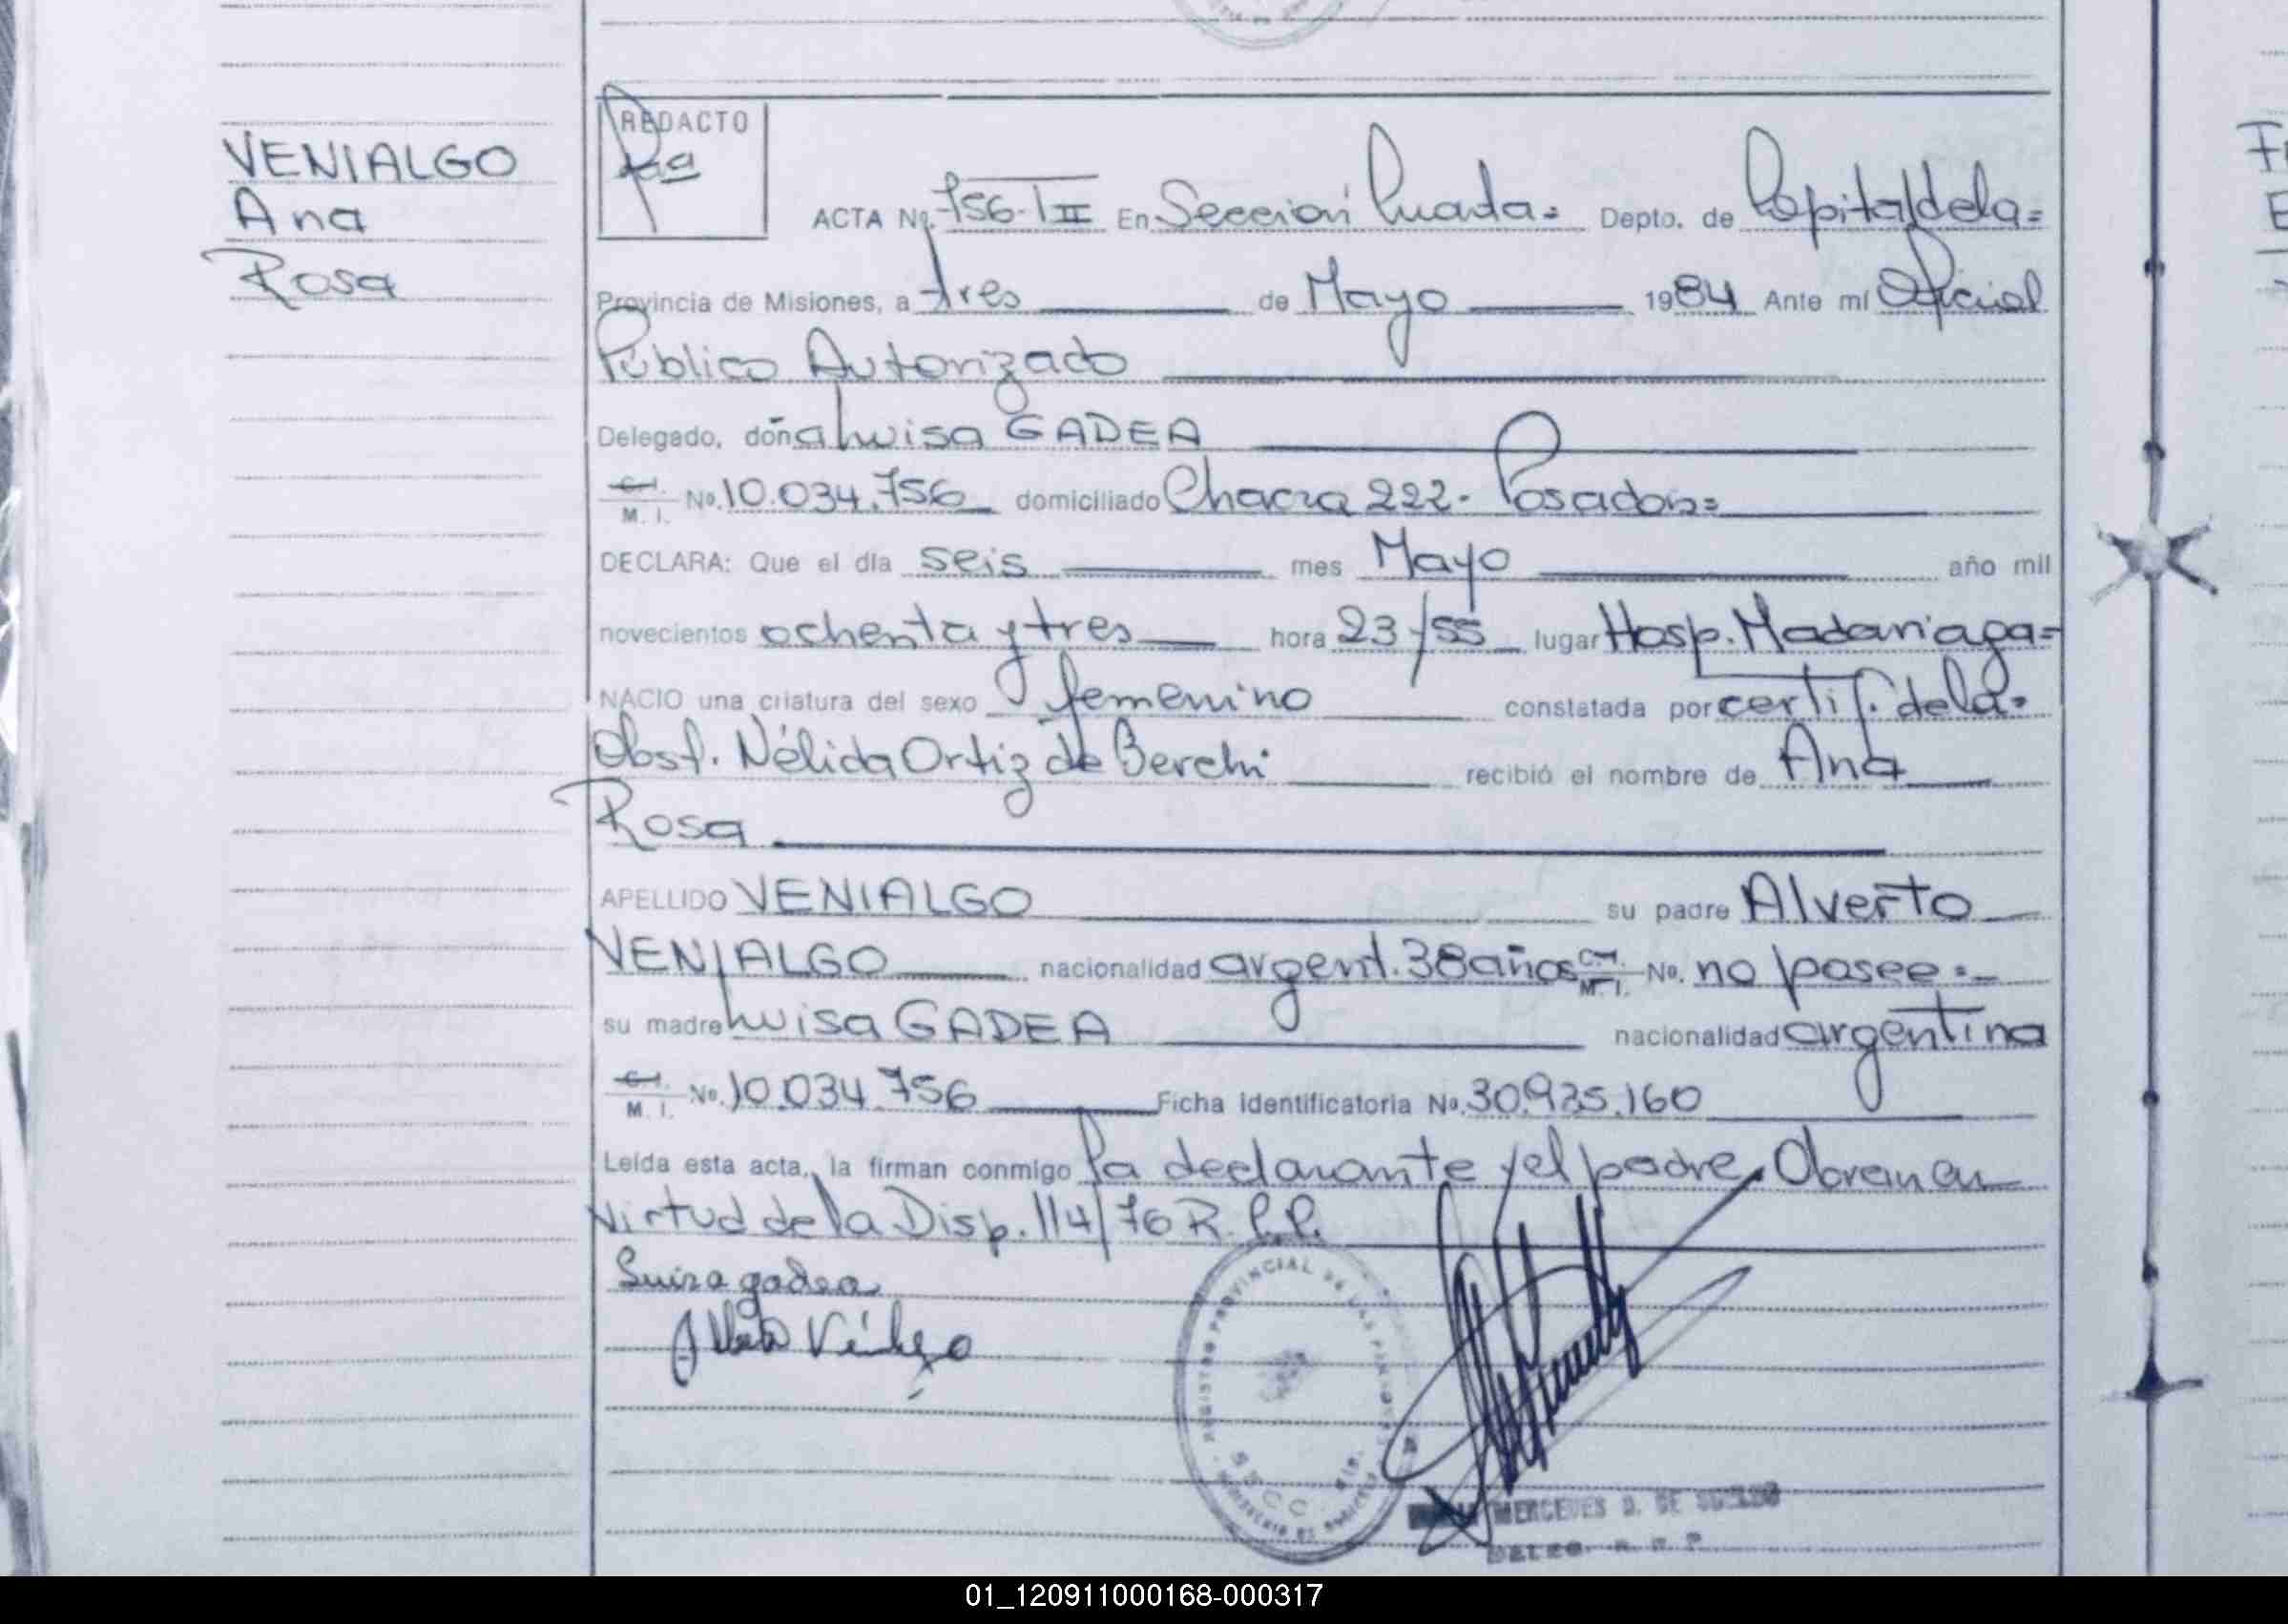 VENIALGO
Ana
Rosa
REDACTO
ACTA No. 756-T II En Sección Cuarta= Depto. de Capital de la=
Provincia de Misiones, a tres de Mayo 1984 Ante mí Oficial
Público Autorizado
Delegado, doña Luisa GADEA
C.I. M. I. No. 10.034.756 domiciliado Chacra 222- Posadas=
DECLARA: Que el día seis mes Mayo año mil
novecientos ochenta y tres hora 23/55 lugar Hosp. Madariaga=
NACIO una criatura del sexo femenino constatada por certif. de la=
Obst. Nélida Ortiz de Berchi recibió el nombre de Ana
Rosa
APELLIDO VENIALGO su padre Alverto
VENIALGO nacionalidad argent. 38 años C.I. M. I. No. no posee=
su madre Luisa GADEA nacionalidad argentina
C.I. M. I. No. 10.034.756 Ficha identificatoria No. 30.935.160
Leída esta acta, la firman conmigo la declarante y el padre. Obran en
virtud de la Disp. 114/76 R.P.P.
Luisa gadea
REGISTRO PROVINCIAL DE LAS PERSONAS
MERCEDES D. DE
DELEG. R. P. P.
01_120911000168-000317